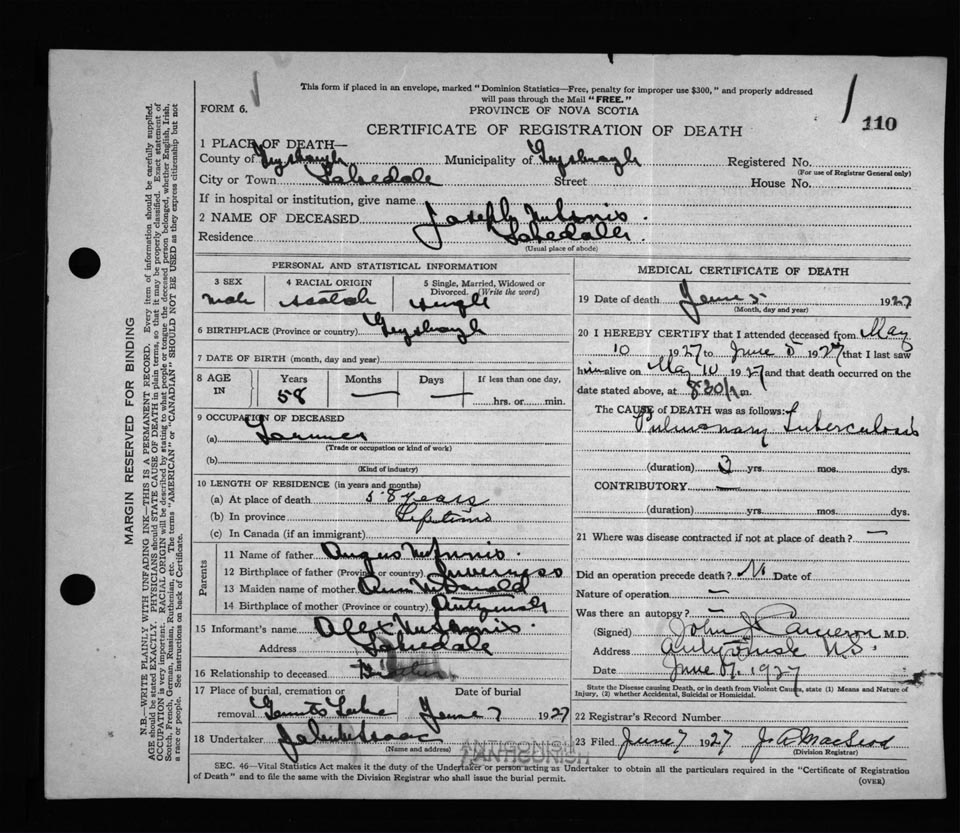 This form if placed in an envelope, marked "Dominion Statistics—Free, penalty for improper use $300," and properly addressed
will pass through the Mail "FREE."
FORM 6.
PROVINCE OF NOVA SCOTIA
110
CERTIFICATE OF REGISTRATION OF DEATH
1 PLACE OF DEATH—
County of Guysborough Municipality of Guysborough Registered No.
(For use of Registrar General only)
City or Town Street House No.
If in hospital or institution, give name
2 NAME OF DECEASED Joseph
Residence
(Usual place of abode)
PERSONAL AND STATISTICAL INFORMATION
3 SEX 4 RACIAL ORIGIN 5 Single, Married, Widowed or Divorced. (Write the word)
Male Scotch Single
6 BIRTHPLACE (Province or country) Guysborough
7 DATE OF BIRTH (month, day and year)
8 AGE IN Years Months Days If less than one day,
58 — — hrs. or min.
9 OCCUPATION OF DECEASED
(a) Farmer
(Trade or occupation or kind of work)
(b)
(Kind of industry)
10 LENGTH OF RESIDENCE (in years and months)
(a) At place of death 58 years
(b) In province Lifetime
(c) In Canada (if an immigrant)
Parents
11 Name of father Angus
12 Birthplace of father (Province or country) Inverness
13 Maiden name of mother Ann
14 Birthplace of mother (Province or country)
15 Informant's name Alex
Address
16 Relationship to deceased
17 Place of burial, cremation or Date of burial
removal Lake June 7 1927
18 Undertaker John
(Name and address)
ANTIGONISH
MEDICAL CERTIFICATE OF DEATH
19 Date of death June 5 1927
(Month, day and year)
20 I HEREBY CERTIFY that I attended deceased from May
10 1927 to June 5 1927 that I last saw
him alive on May 10 1927 and that death occurred on the
date stated above, at 8.30 m.
The CAUSE of DEATH was as follows:
Pulmonary Tuberculosis
(duration) yrs. mos. dys.
CONTRIBUTORY —
(duration) yrs. mos. dys.
21 Where was disease contracted if not at place of death? —
Did an operation precede death? No Date of
Nature of operation —
Was there an autopsy? —
(Signed) John J Cameron M.D.
Address Antigonish N.S.
Date June 1927
State the Disease causing Death, or in death from Violent Causes, state (1) Means and Nature of
Injury, (2) whether Accidental, Suicidal or Homicidal.
22 Registrar's Record Number
23 Filed June 7 1927 MacLeod
(Division Registrar)
SEC. 46—Vital Statistics Act makes it the duty of the Undertaker or person acting as Undertaker to obtain all the particulars required in the "Certificate of Registration
of Death" and to file the same with the Division Registrar who shall issue the burial permit.
(OVER)
MARGIN RESERVED FOR BINDING
N.B.—WRITE PLAINLY WITH UNFADING INK—THIS IS A PERMANENT RECORD. Every item of information should be carefully supplied.
AGE should be stated EXACTLY. PHYSICIANS should STATE CAUSE OF DEATH in plain terms, so that it may be properly classified. Exact statement of
OCCUPATION is very important. RACIAL ORIGIN will be described by stating to what people or tongue the deceased person belonged, whether English, Irish,
Scotch, French, German, Russian, Ruthenian, etc. The terms "AMERICAN" or "CANADIAN" SHOULD NOT BE USED as they express citizenship but not
a race or people. See instructions on back of Certificate.